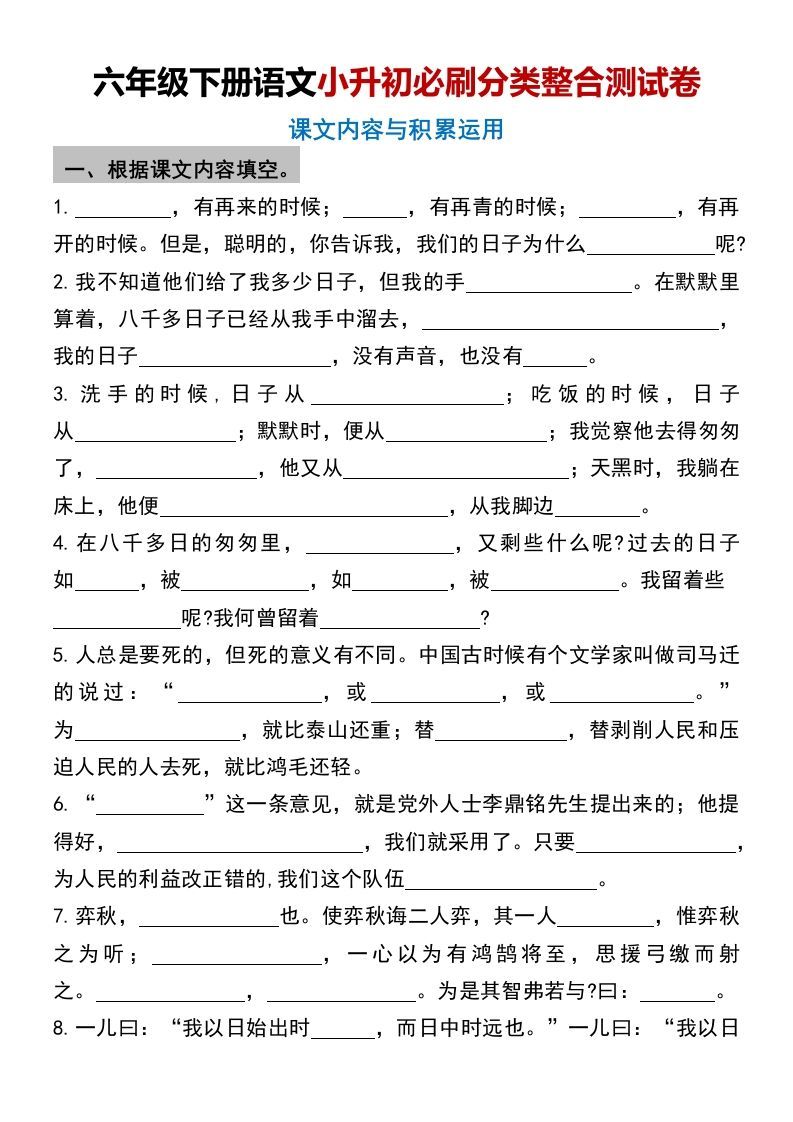 六年级下册语文小升初必刷分类整合测试卷
课文内容与积累运用
一、根据课文内容填空。
1.________，有再来的时候；______，有再青的时候；________，有再
开的时候。但是，聪明的，你告诉我，我们的日子为什么____________呢?
2.我不知道他们给了我多少日子，但我的手________________。在默默里
算着，八千多日子已经从我手中溜去，____________________________，
我的日子__________________，没有声音，也没有______。
3.洗手的时候,日子从__________________；吃饭的时候，日子
从________________；默默时，便从________________；我觉察他去得匆匆
了，________________，他又从______________________；天黑时，我躺在
床上，他便____________________________，从我脚边________。
4.在八千多日的匆匆里，______________，又剩些什么呢?过去的日子
如______，被____________，如_________，被____________。我留着些
____________呢?我何曾留着________________?
5.人总是要死的，但死的意义有不同。中国古时候有个文学家叫做司马迁
的说过：“______________，或____________，或______________。”
为________________，就比泰山还重；替____________，替剥削人民和压
迫人民的人去死，就比鸿毛还轻。
6.“__________”这一条意见，就是党外人士李鼎铭先生提出来的；他提
得好，________________________，我们就采用了。只要________________，
为人民的利益改正错的,我们这个队伍__________________。
7.弈秋，______________也。使弈秋诲二人弈，其一人_________，惟弈秋
之为听；________________，一心以为有鸿鹄将至，思援弓缴而射
之。______________，______________。为是其智弗若与?曰：_______。
8.一儿曰：“我以日始出时______，而日中时远也。”一儿曰：“我以日